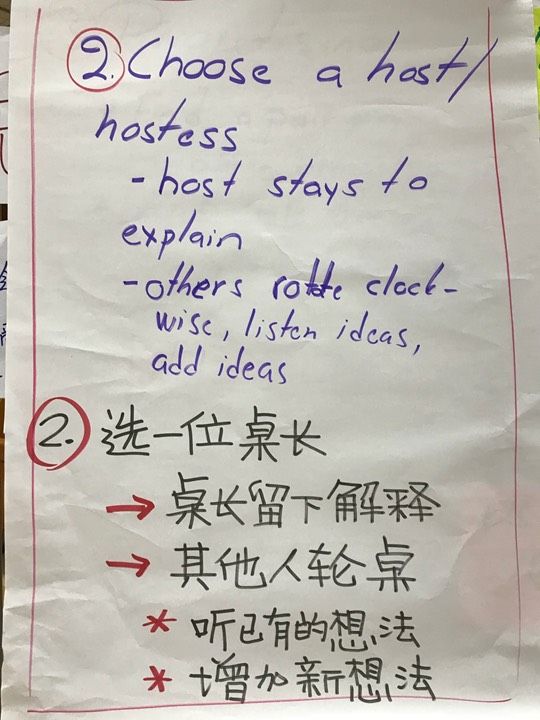 2. Choose a host/
hostess
- host stays to
explain
- others rotate clock-
wise, listen ideas,
add ideas
2. 选一位桌长
→ 桌长留下解释
→ 其他人轮桌
* 听已有的想法
* 增加新想法